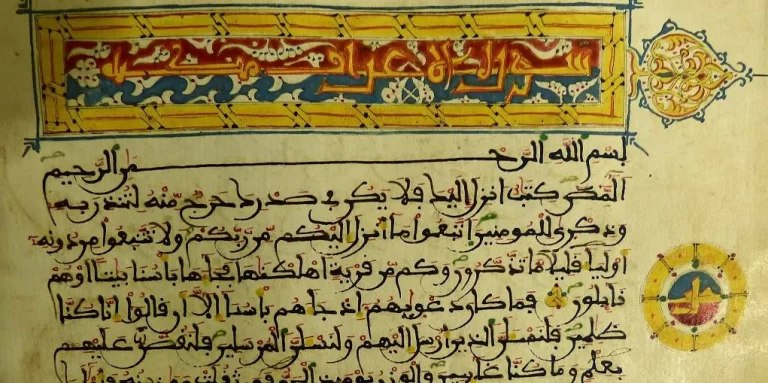 سورة الاعراف مكية
بسم الله الرحمن الرحيم
المص كتب انزل اليك فلا يكن في صدرك حرج منه لتنذر به
وذكرى للمومنين اتبعوا ما انزل اليكم من ربكم ولا تتبعوا من دونه
اوليا قليلا ما تذكرون وكم من قرية اهلكنها فجاها باسنا بيتا او هم
قايلون فما كان دعويهم اذ جاهم باسنا الا ان قالوا انا كنا
ظلمين فلنسلن الذين ارسل اليهم ولنسلن المرسلين فلنقصن عليهم
بعلم وما كنا غايبين والوزن يوميذ الحق فمن ثقلت موزينه